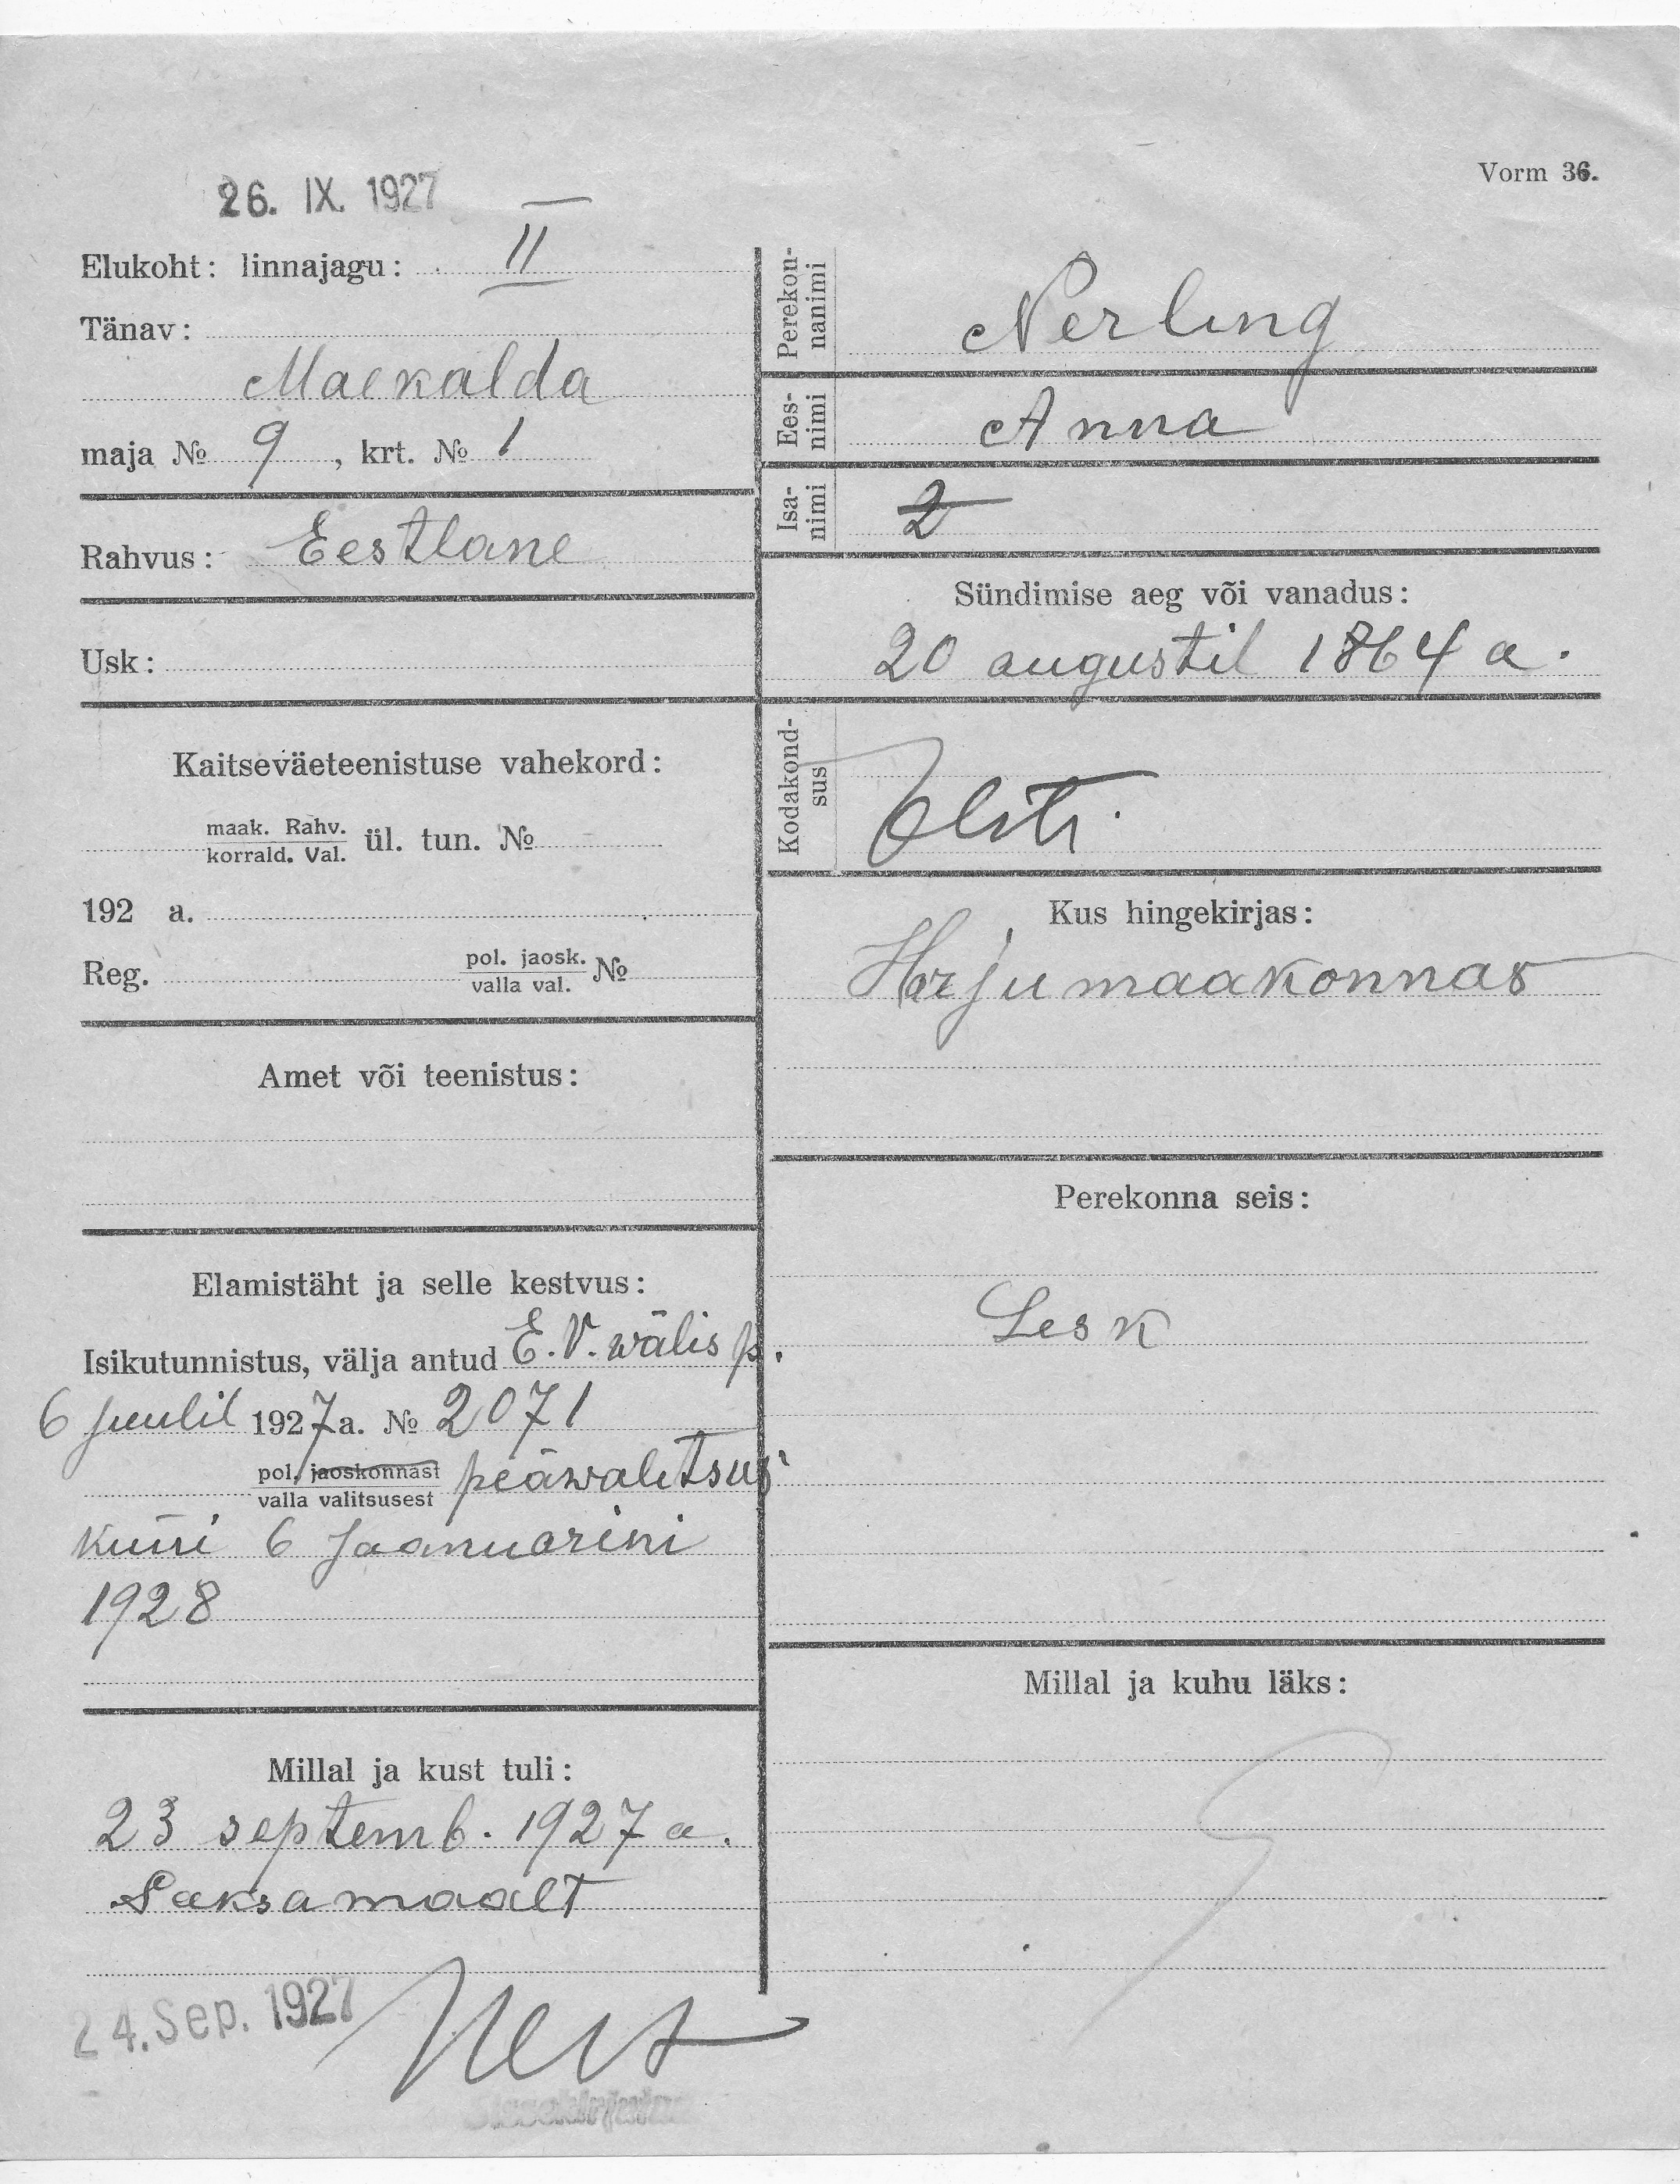 Vorm 36.
26. IX. 1927
Elukoht: linnajagu: II
Tänav:
Maekalda
maja № 9, krt. № 1
Rahvus: Eestlane
Usk:
Kaitseväeteenistuse vahekord:
maak. Rahv.
korrald. Val. ül. tun. №
192 a.
Reg. pol. jaosk. №
valla val.
Amet või teenistus:
Elamistäht ja selle kestvus:
Isikutunnistus, välja antud E.V. wälis p.
6 juulil 1927 a. № 2071
pol. jaoskonnast peawalitsus
valla valitsusest
kuni 6 jaanuarini
1928
Millal ja kust tuli:
23 septemb. 1927 a.
Saksamaalt
24. Sep. 1927
Perekonnanimi
Nerling
Eesnimi
Anna
Isanimi
2
Sündimise aeg või vanadus:
20 augustil 1864 a.
Kodakondsus
Eesti.
Kus hingekirjas:
Harjumaakonnas
Perekonna seis:
Lesk
Millal ja kuhu läks: